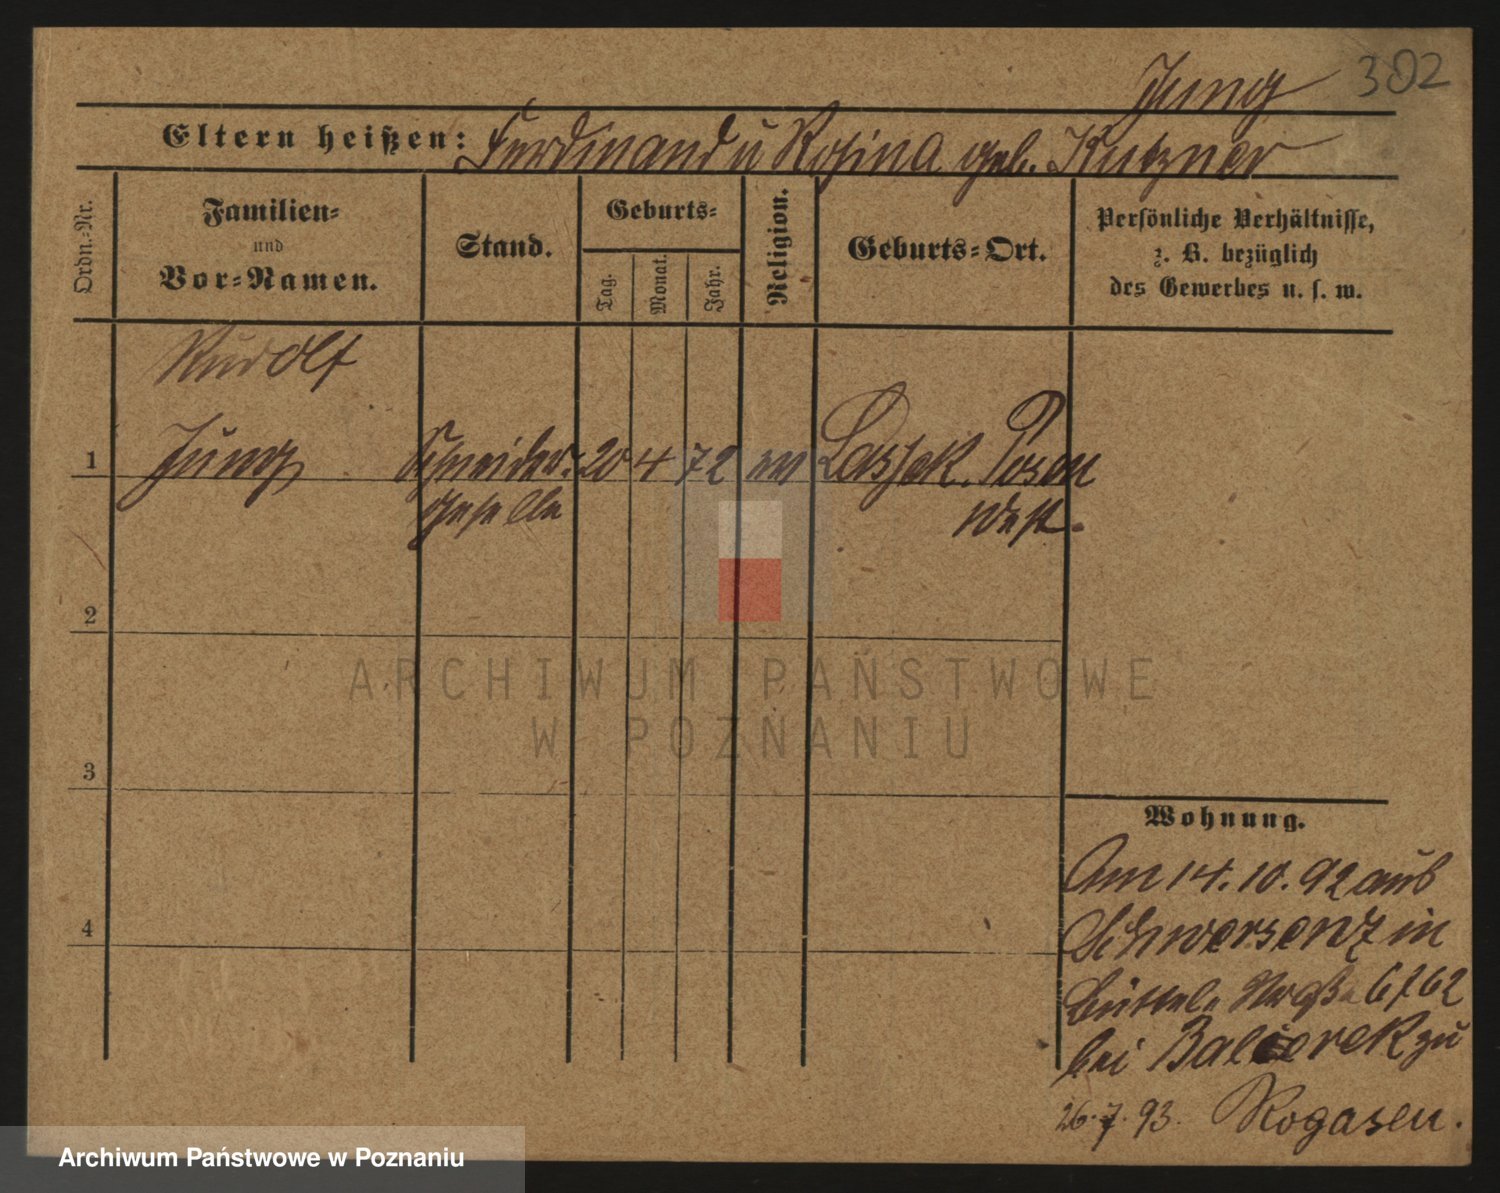 Jung 302
Eltern heißen: Ferdinand u Rosina geb. Kutzner
Ordn.-Nr.
Familien-
und
Vor-Namen.
Stand.
Geburts-
Tag.
Monat.
Jahr.
Religion.
Geburts-Ort.
Persönliche Verhältnisse,
z. B. bezüglich
des Gewerbes u. s. w.
Rudolf
1 Jung Schneider- 20 4 72 ev Lassek. Posen
geselle West.
2
ARCHIWUM PAŃSTWOWE
W POZNANIU
3
Wohnung.
Am 14.10.92 aus
4
Schwersenz in
Büttel. 6/62
bei zu
26.7.93. Rogasen.
Archiwum Państwowe w Poznaniu